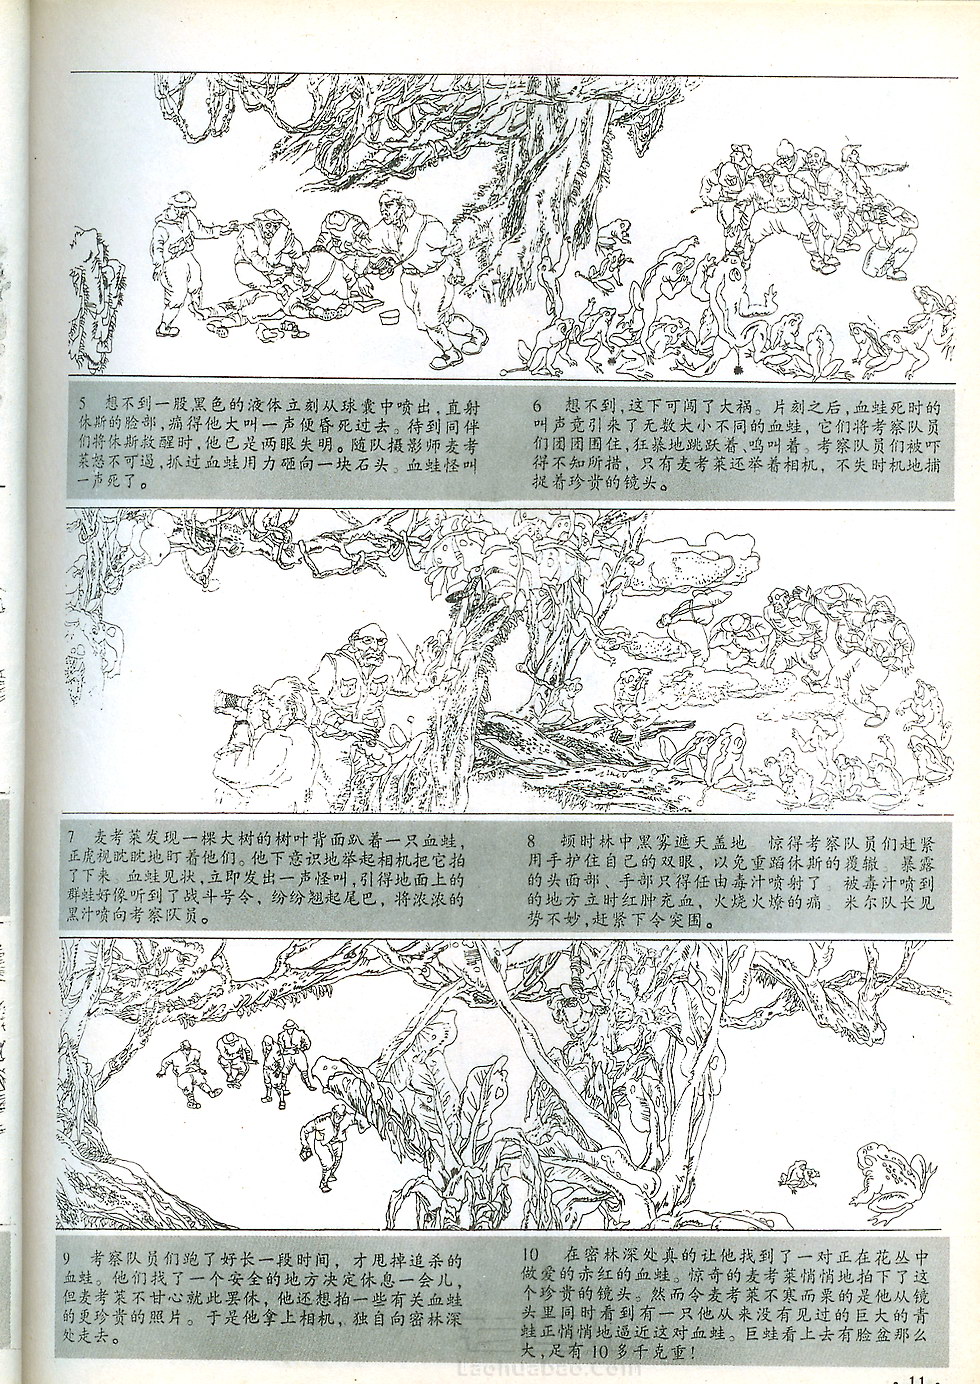 5 想不到一股黑色的液体立刻从球囊中喷出，直射
休斯的脸部，痛得他大叫一声便昏死过去。待到同伴
们将休斯救醒时，他已是两眼失明。随队摄影师麦考
莱怒不可遏，抓过血蛙用力砸向一块石头。血蛙怪叫
一声死了。
6 想不到，这下可闯了大祸。片刻之后，血蛙死时的
叫声竟引来了无数大小不同的血蛙，它们将考察队员
们团团围住，狂暴地跳跃着、鸣叫着。考察队员们被吓
得不知所措，只有麦考莱还举着相机，不失时机地捕
捉着珍贵的镜头。
7 麦考莱发现一棵大树的树叶背面趴着一只血蛙，
正虎视眈眈地盯着他们。他下意识地举起相机把它拍
了下来。血蛙见状，立即发出一声怪叫，引得地面上的
群蛙好像听到了战斗号令，纷纷翘起尾巴，将浓浓的
黑汁喷向考察队员。
8 顿时林中黑雾遮天盖地 惊得考察队员们赶紧
用手护住自己的双眼，以免重蹈休斯的覆辙。暴露
的头面部、手部只得任由毒汁喷射了 被毒汁喷到
的地方立时红肿充血，火烧火燎的痛 米尔队长见
势不妙，赶紧下令突围。
9 考察队员们跑了好长一段时间，才甩掉追杀的
血蛙。他们找了一个安全的地方决定休息一会儿，
但麦考莱不甘心就此罢休，他还想拍一些有关血蛙
的更珍贵的照片。于是他拿上相机，独自向密林深
处走去。
10 在密林深处真的让他找到了一对正在花丛中
做爱的赤红的血蛙。惊奇的麦考莱悄悄地拍下了这
个珍贵的镜头。然而令麦考莱不寒而栗的是他从镜
头里同时看到有一只他从来没有见过的巨大的青
蛙正悄悄地逼近这对血蛙。巨蛙看上去有脸盆那么
大，足有10多千克重！
Laohuabao.com
· 11 ·